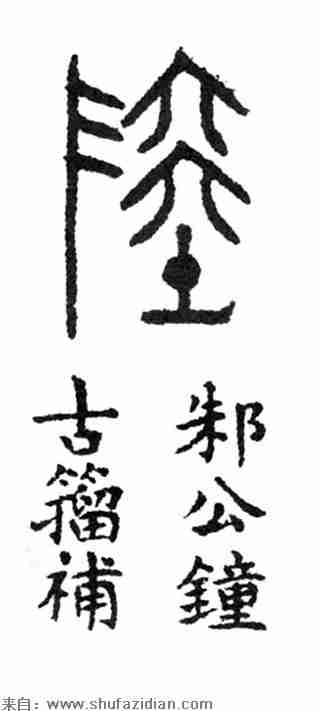 陸
邾公鐘
古籀補
来自：www.shufazidian.com